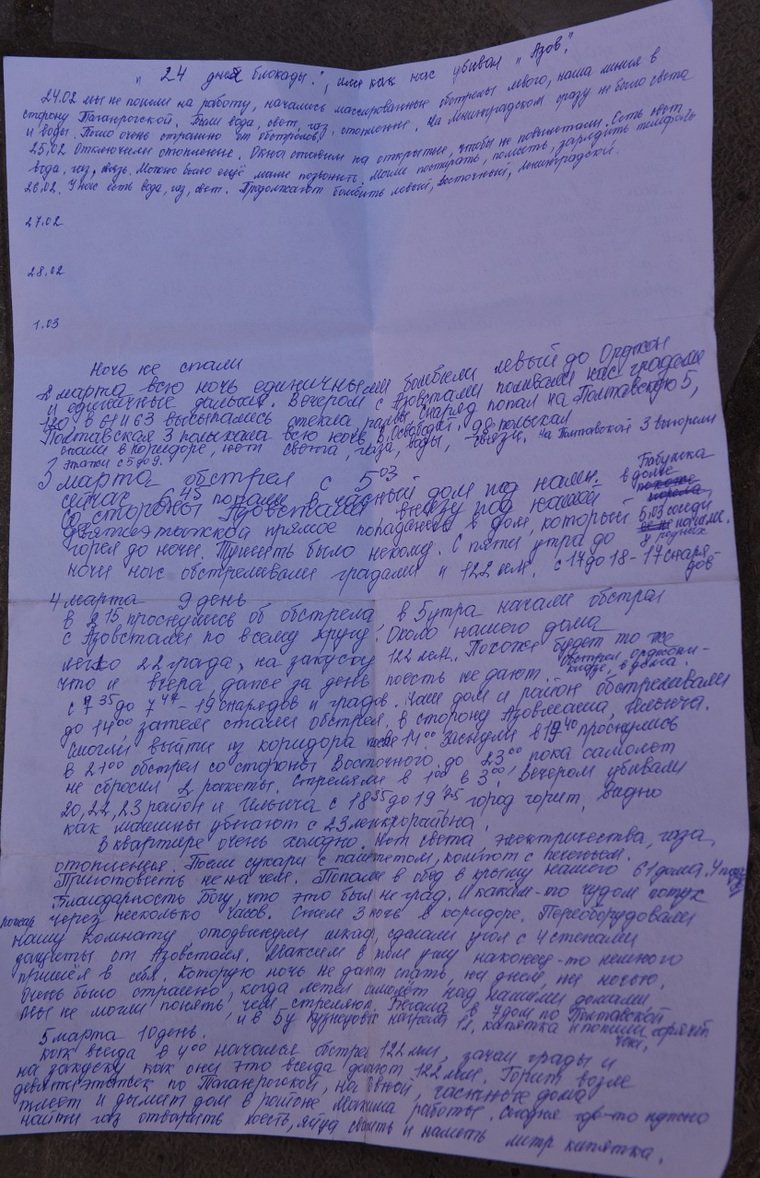 "24 дня блокады", или как нас убивал "Азов".
24.02 мы не пошли на работу, начались массированные обстрелы левого, наша линия в
сторону Таганрогской. Были вода, свет, газ, отопление. На Ленинградском сразу не было света
и воды. Было очень страшно от обстрелов.
25.02 Отключили отопление. Окна ставим на открытие, чтобы не повылетали. Есть свет
вода, газ, связь. Можно было ещё маме позвонить. Могли постирать, поесть, зарядить телефоны
26.02. У нас есть вода, газ, свет. Продолжают бомбить левый, Восточный, Ленинградский.
27.02
28.02
1.03
Ночь не спали
2 марта всю ночь единичными бомбили левый до Орджон
и единичные дальше. Вечером с Азовстали поливали нас градами
120, в 61 и 63 высыпались стекла, рамы, снаряд попал на Полтавскую 5,
Полтавская 3 полыхала всю ночь, 98 полыхал
спали в коридоре, нет света, газа, воды, связи. На Полтавской 3 выгорели
этажи с 5 до 9.
3 марта обстрел с 5 03
сейчас 6 45 попали в частный дом под нами. Бабушка в доме
Со стороны Азовстали внизу под нашей
девятиэтажкой прямое попадание в дом, который
горел до ночи. Тушить было некому. С пяти утра до
ночи нас обстреливали градами и 122 мм. с 17 до 18 - 17 снаря-
дов
4 марта 9 день
в 2 15 проснулись об обстрела, в 5 утра начали обстрел
с Азовстали по всему кругу. Около нашего дома
легло 22 града, на закуску 122 мм. Похоже будет то же
что и вчера, даже за день поесть не дают. Обстрел Орджони-
кидзе, в дома.
с 7 35 до 7 47 - 19 снарядов и градов. Наш дом и район обстреливали
до 14 00, затем стали обстрел. в сторону Азовмаша, Ильича.
Смогли выйти из коридора после 14 00. Заснули в 19 40 проснулись
в 21 00 обстрел со стороны Восточного. до 23 00 пока самолет
не сбросил 2 ракеты. Стреляли в 1 00 в 3 00. Вечером убивали
20, 22, 23 район и Ильича с 18 35 до 19 45 город горит, видно
как машины убегают с 23 микрорайона.
В квартире очень холодно. Нет света, электричества, газа,
отопления. Поели сухари с паштетом, компот с печеньем.
Приготовить не на чем. Попали в обед в крышу нашего 61 дома.
Благодарность Богу, что это был не град. И каким-то чудом потух
пожар через несколько часов. Спим 3 ночь в коридоре. Переоборудовали
нашу комнату отодвинули шкаф сделали угол с 4 стенами
защиты от Азовсталя. Максим в том углу наконец-то немного
пришёл в себя. Которую ночь не дают спать, ни днем, ни ночью.
Очень было страшно, когда летел самолет над нашими домами
мы не могли понять, чем стреляют. Бегала в 7 дом по Полтавской
и в 5 у Кузнецовых нагрела 1 л. кипятка и попили горячий
чай.
5 марта 10 день.
как всегда в 4 00 начался обстрел 122 мм, затем грады и
на закуску как они это всегда делают 122 мм. Горит возле
девятиэтажек по Таганрогской, частные дома
тлеет и дымит дом в районе Максима работы. Сегодня где-то нужно
найти газ отварить кость, яйца сварить и налить литр кипятка.